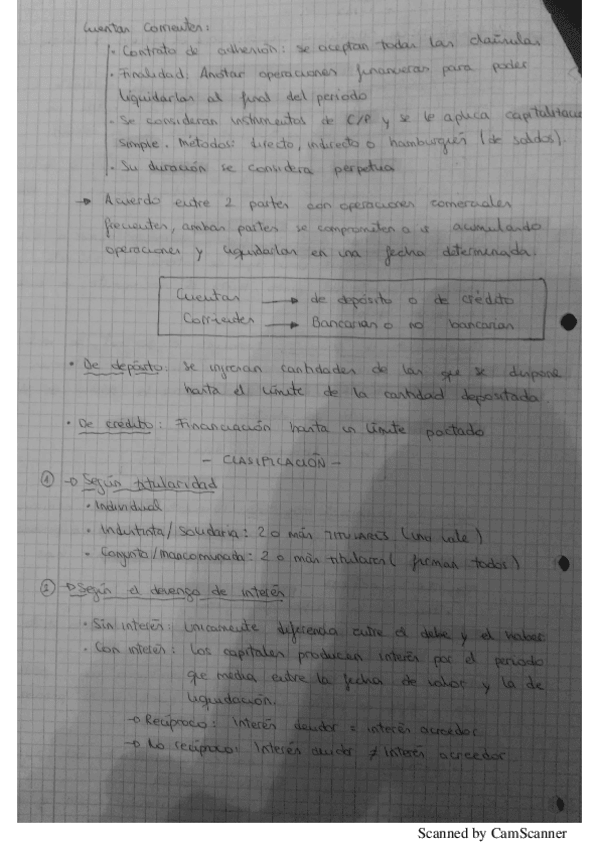 Cuentas Corrientes:
· Contrato de adhesión: se aceptan todas las cláusulas
· Finalidad: Anotar operaciones financieras para poder
liquidarlas al final del período
· Se consideran instrumentos de C/P y se le aplica capitalización
simple. Métodos: directo, indirecto o hamburgués (de saldos).
· Su duración se considera perpetua
→ Acuerdo entre 2 partes con operaciones comerciales
frecuentes, ambas partes se comprometen a ir acumulando
operaciones y liquidarlas en una fecha determinada.
Cuentas → de depósito o de crédito
Corrientes → Bancarias o no bancarias
· De depósito: se ingresan cantidades de las que se dispone
hasta el límite de la cantidad depositada.
· De crédito: Financiación hasta un límite pactado
- CLASIFICACIÓN -
① → Según titularidad
· Individual
· Indistinta/Solidaria: 2 o más TITULARES (uno vale)
· Conjunta/mancomunada: 2 o más titulares (firman todos)
② → Según el devengo de interés
· Sin interés: Unicamente diferencia entre el debe y el haber
· Con interés: Los capitales producen interés por el periodo
que media entre la fecha de valor y la de
liquidación.
→ Recíproco: Interés deudor = interés acreedor
→ No recíproco: Interés deudor ≠ interés acreedor
Scanned by CamScanner